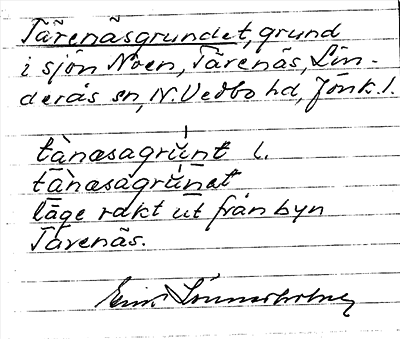 Tärenäsgrundet, grund
i sjön Noen, Tärenäs, Lin-
derås sn, N. Vedbo hd, Jönk. l.
tànæsagrŭnt l.
tànæsagrŭnat
läge rakt ut från byn
Tärenäs.